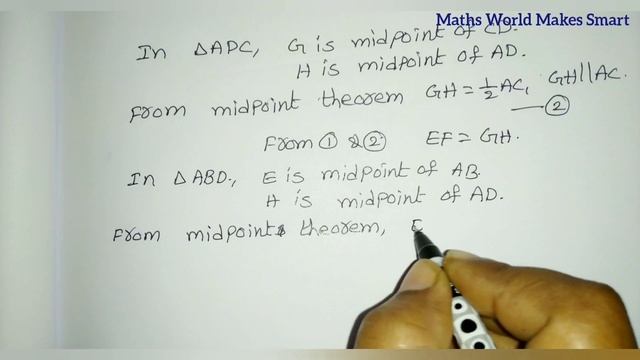 Maths World Makes Smart
In △ADC, G is midpoint of CD.
H is midpoint of AD.
From midpoint theorem GH = 1/2 AC, GH || AC.
—— ②
From ① & ② EF = GH.
In △ABD, E is midpoint of AB.
H is midpoint of AD.
From midpoint theorem, E